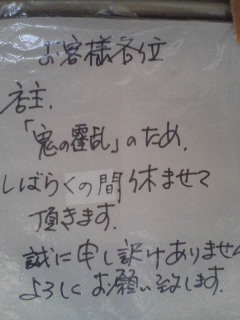 お客様各位
店主、
「鬼の霍乱」のため、
しばらくの間休ませて
頂きます。
誠に申し訳けありません
よろしくお願い致します。